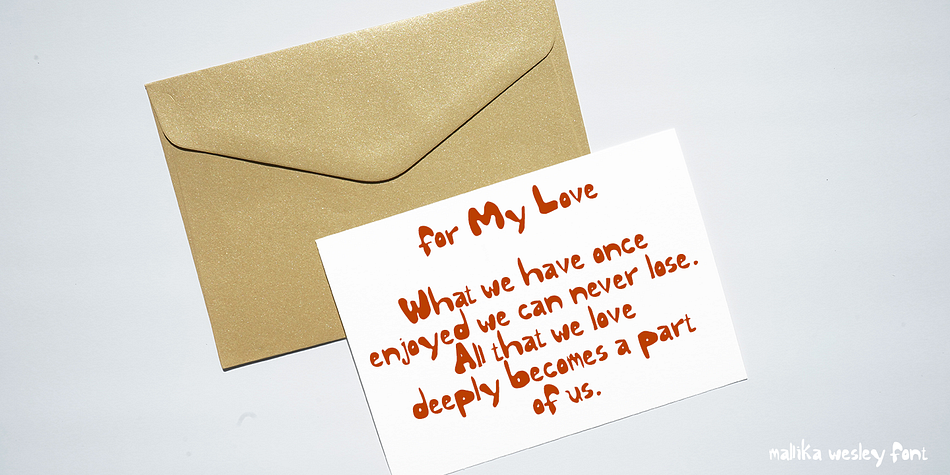 for My Love
What we have once
enjoyed we can never lose.
All that we love
deeply becomes a part
of us.
mallika wesley font